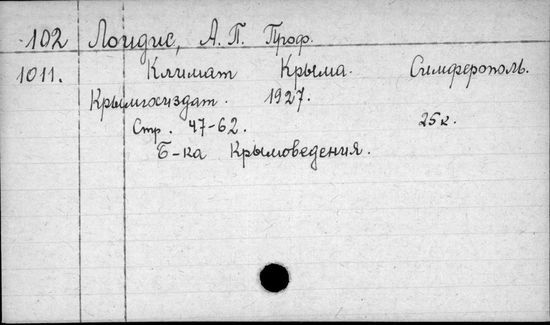 102 Лоидис, А. П. Проф.
1011. Климат Крыма. Симферополь.
Крымгосиздат. 1927.
Стр. 47-62. 25к.
Б-ка Крымоведения.